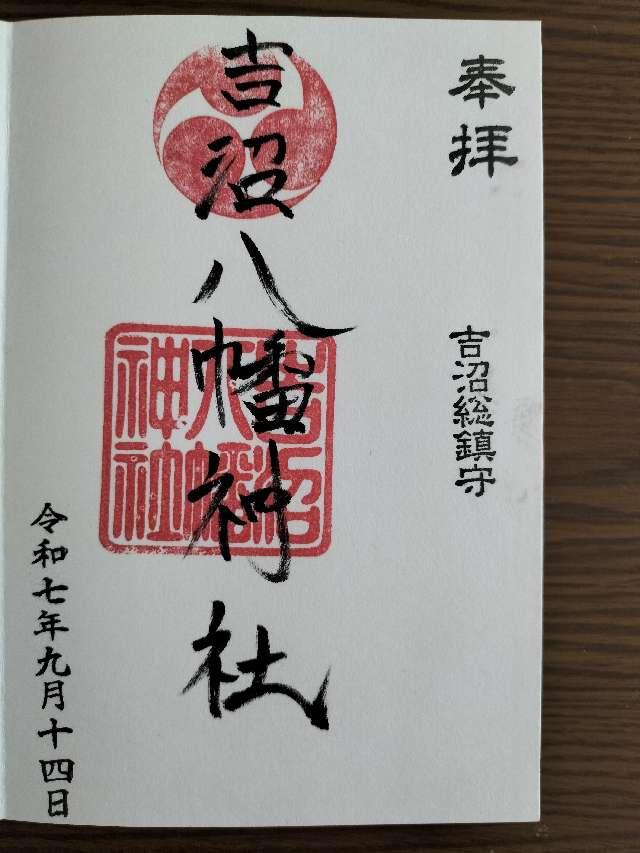 奉拝
吉沼総鎮守
吉沼八幡神社
吉沼
八幡
神社
令和七年九月十四日